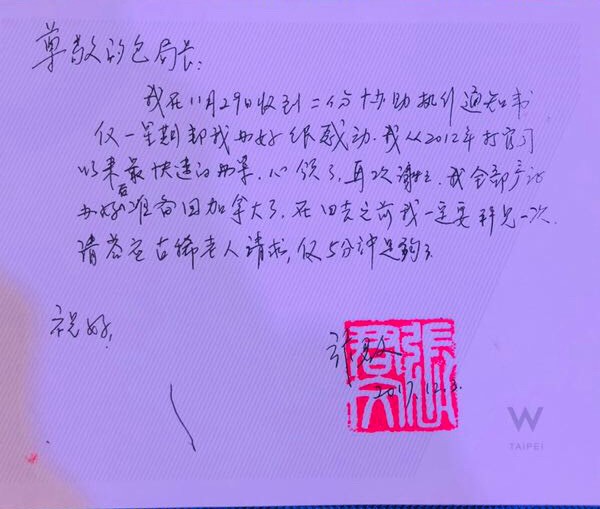 尊敬的包局长：
我在11月29日收到二份协助执行通知书
仅一星期都我办好很感动.我从2012年打官司
以来最快速的办案.心领了,再次谢谢.我全部产证
办好后准备回加拿大了.在回去之前我一定要拜见一次.
请答应古稀老人请求,仅5分钟足够了
祝好!
张
2017.12.3.
W
TAIPEI